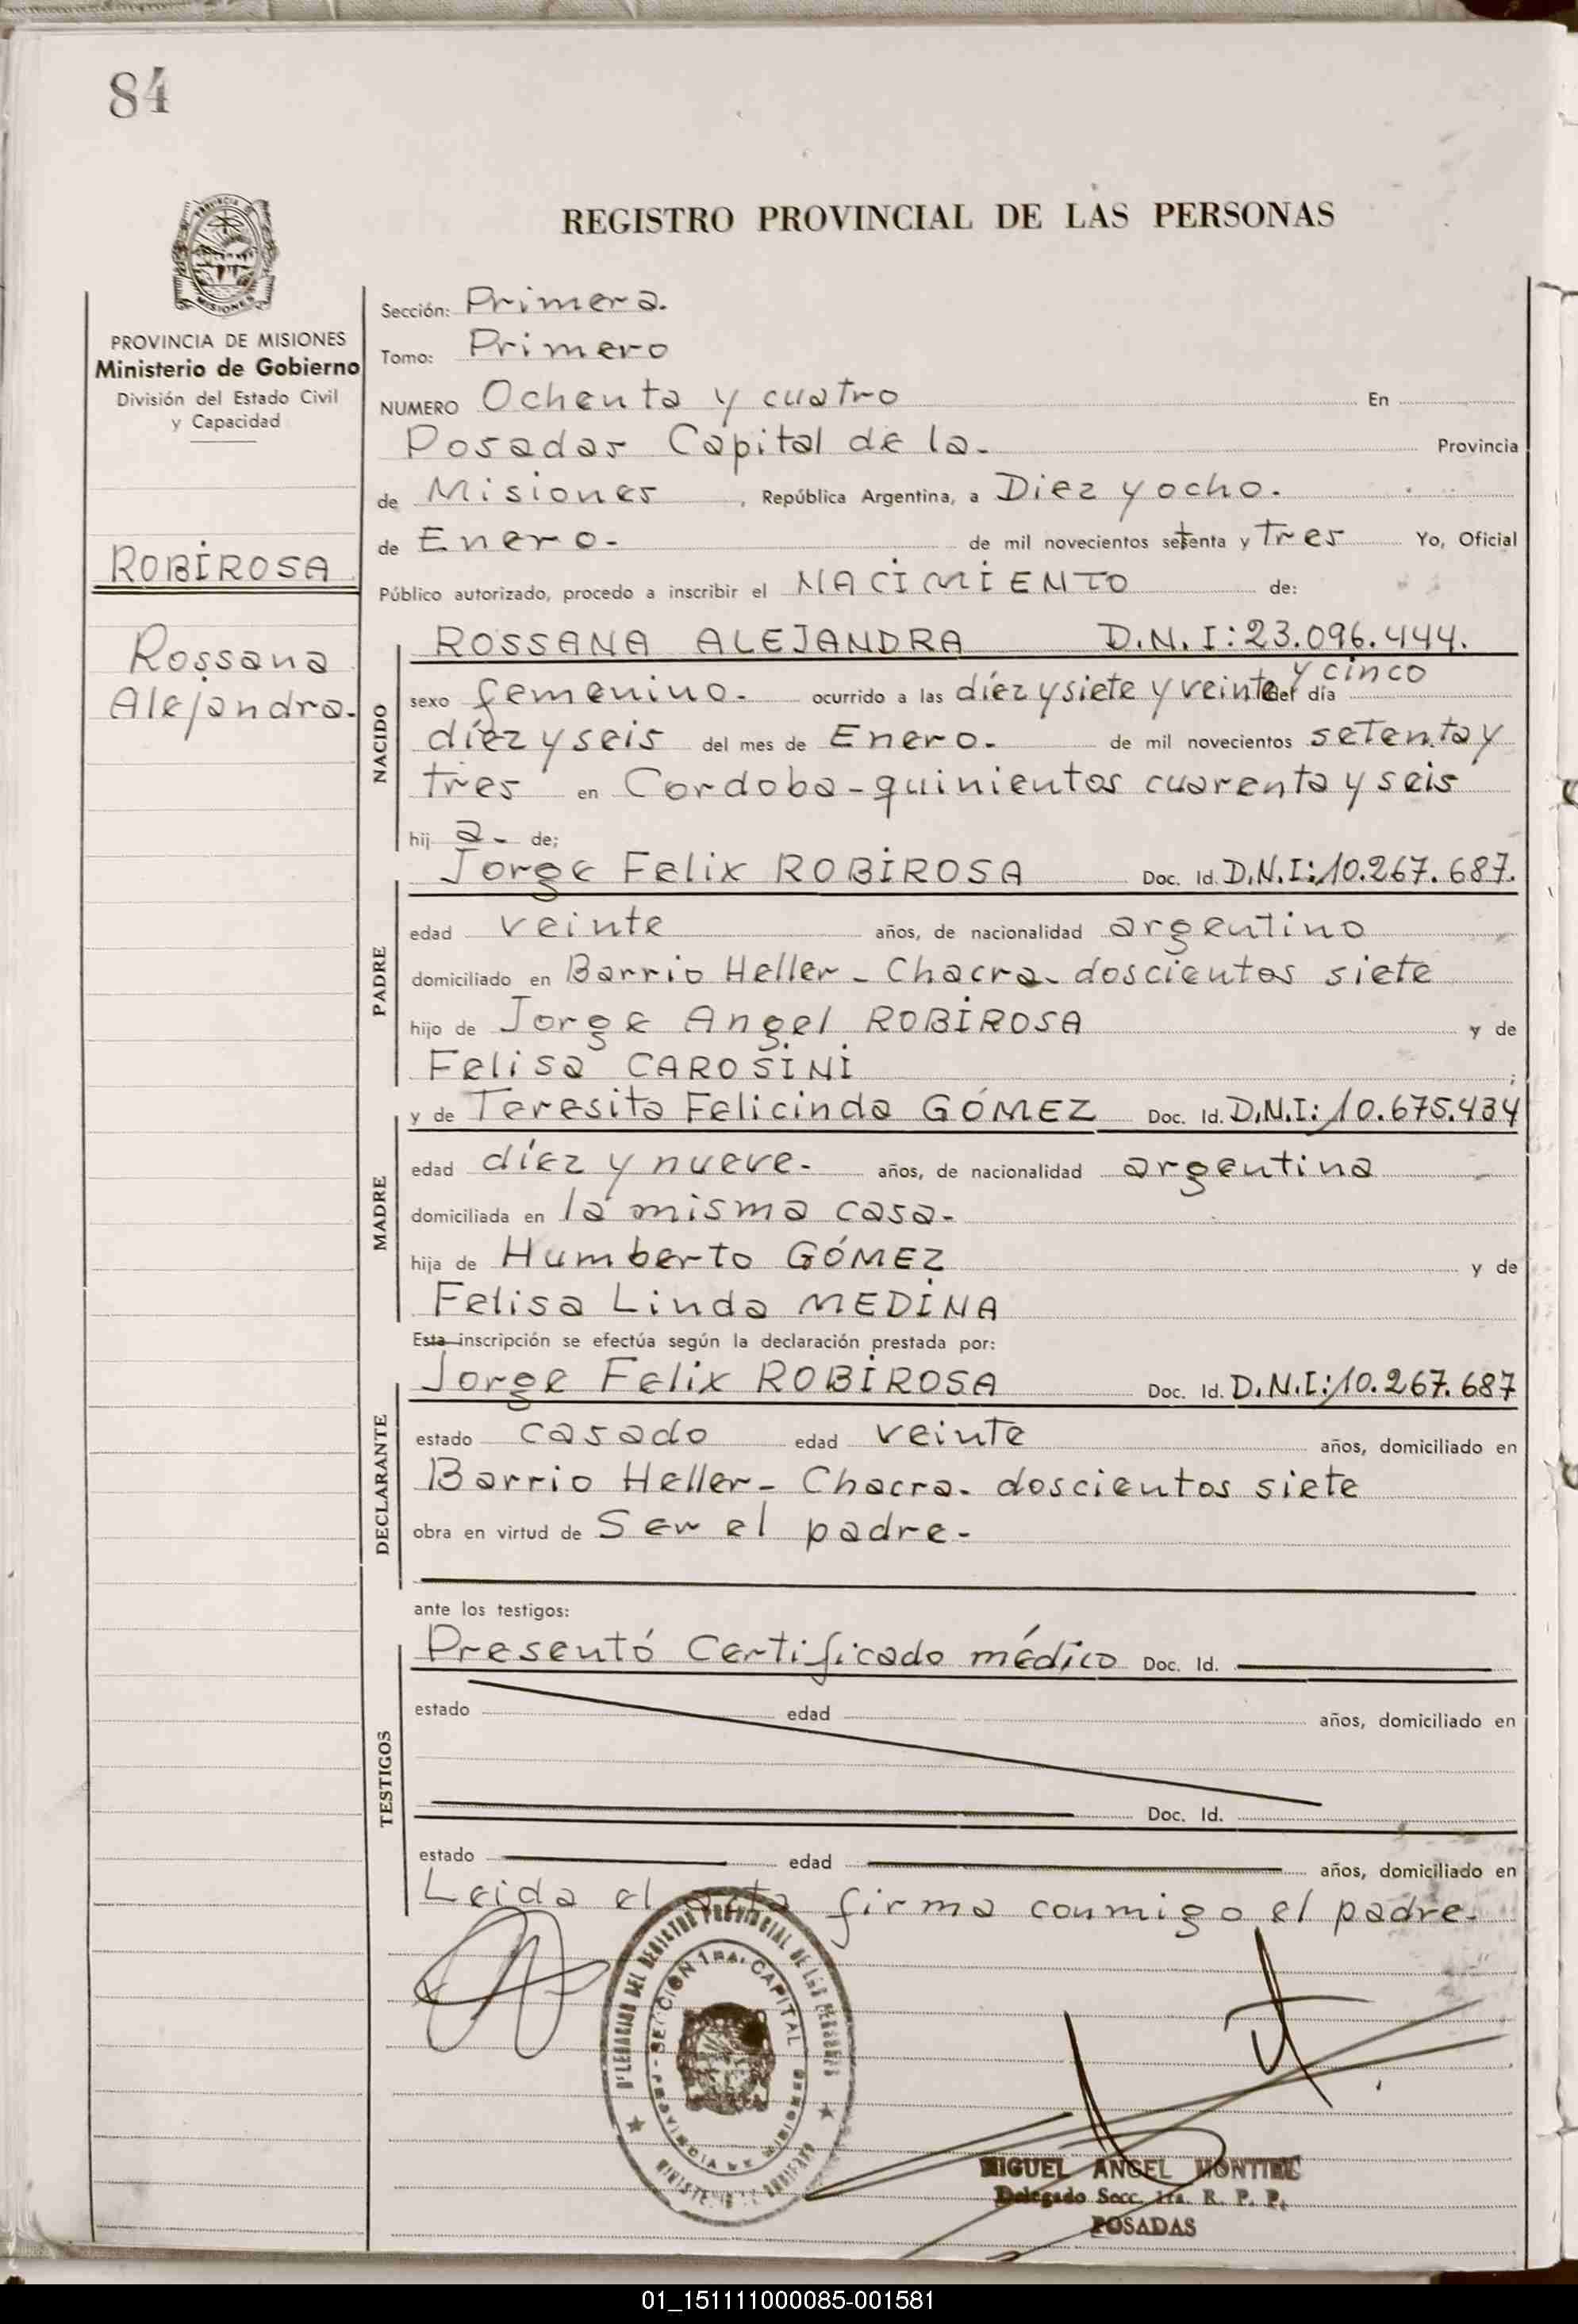 84
REGISTRO PROVINCIAL DE LAS PERSONAS
PROVINCIA DE MISIONES
Ministerio de Gobierno
División del Estado Civil
y Capacidad
ROBIROSA
Rossana
Alejandra.
Sección: Primera.
Tomo: Primero
NUMERO Ochenta y cuatro En
Posadas Capital de la. Provincia
de Misiones, República Argentina, a Diez y ocho.
de Enero. de mil novecientos setenta y Tres Yo, Oficial
Público autorizado, procedo a inscribir el NACIMIENTO de:
NACIDO
ROSSANA ALEJANDRA D.N.I: 23.096.444.
sexo femenino. ocurrido a las diéz y siete y veinte y cinco del día
diéz y seis del mes de Enero. de mil novecientos setenta y
tres en Cordoba-quinientos cuarenta y seis
hij a. de;
PADRE
Jorge Felix ROBIROSA Doc. Id. D.N.I: 10.267.687.
edad veinte años, de nacionalidad argentino
domiciliado en Barrio Heller - Chacra- doscientos siete
hijo de Jorge Angel ROBIROSA y de
Felisa CAROSINI ;
MADRE
y de Teresita Felicinda GÓMEZ Doc. Id. D.N.I: 10.675.434
edad diéz y nueve. años, de nacionalidad argentina
domiciliada en la misma casa.
hija de Humberto GÓMEZ y de
Felisa Linda MEDINA
Esta inscripción se efectúa según la declaración prestada por:
DECLARANTE
Jorge Felix ROBIROSA Doc. Id. D.N.I: 10.267.687
estado casado edad veinte años, domiciliado en
Barrio Heller- Chacra. doscientos siete
obra en virtud de Ser el padre.
ante los testigos:
TESTIGOS
Presentó Certificado médico Doc. Id.
estado edad años, domiciliado en
Doc. Id.
estado edad años, domiciliado en
Leida el acta firma conmigo el padre.
REGISTRO PROVINCIAL DE LAS PERSONAS
SECCION 1ra. CAPITAL
PROVINCIA DE MISIONES
MIGUEL ANGEL MONTIEL
Delegado Secc. 1ra. R. P. P.
POSADAS
01_151111000085-001581